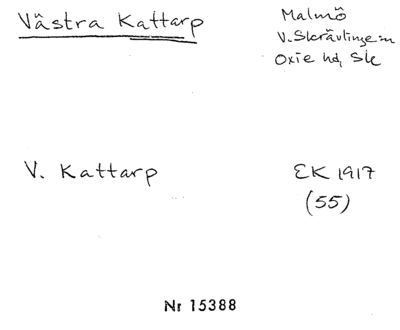 Västra Kattarp
Malmö
V. Skrävlinge sn
Oxie hd, Sk
V. Kattarp
EK 1917
(55)
Nr 15388